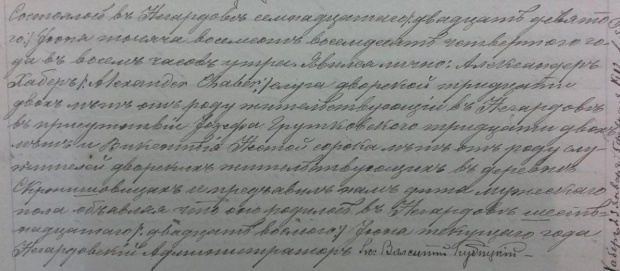 Состоялось въ Негардовѣ семнадцатаго /:двадцать девято-
го:/ Iюня тысяча восемьсотъ восемдесятъ четвертаго го-
да въ восемь часовъ утра. Явился лично: Александеръ
Хаберъ /:Alexander Chaber:/ слуга дворской тридцати
двохъ лѣтъ отъ роду жительствующiй въ Негардовѣ
въ присутствiи Iозефа Грутковскаго тридцати двохъ
лѣтъ и сорока лѣтъ отъ роду слу-
жителей дворскихъ жительствующихъ въ деревнѣ
и предъявилъ намъ дитя мужескаго
пола объявляя что оно родилось въ Негардовѣ шест-
надцатаго /:двадцать восьмаго:/ Iюня текущаго года
Негардовскiй Администраторъ